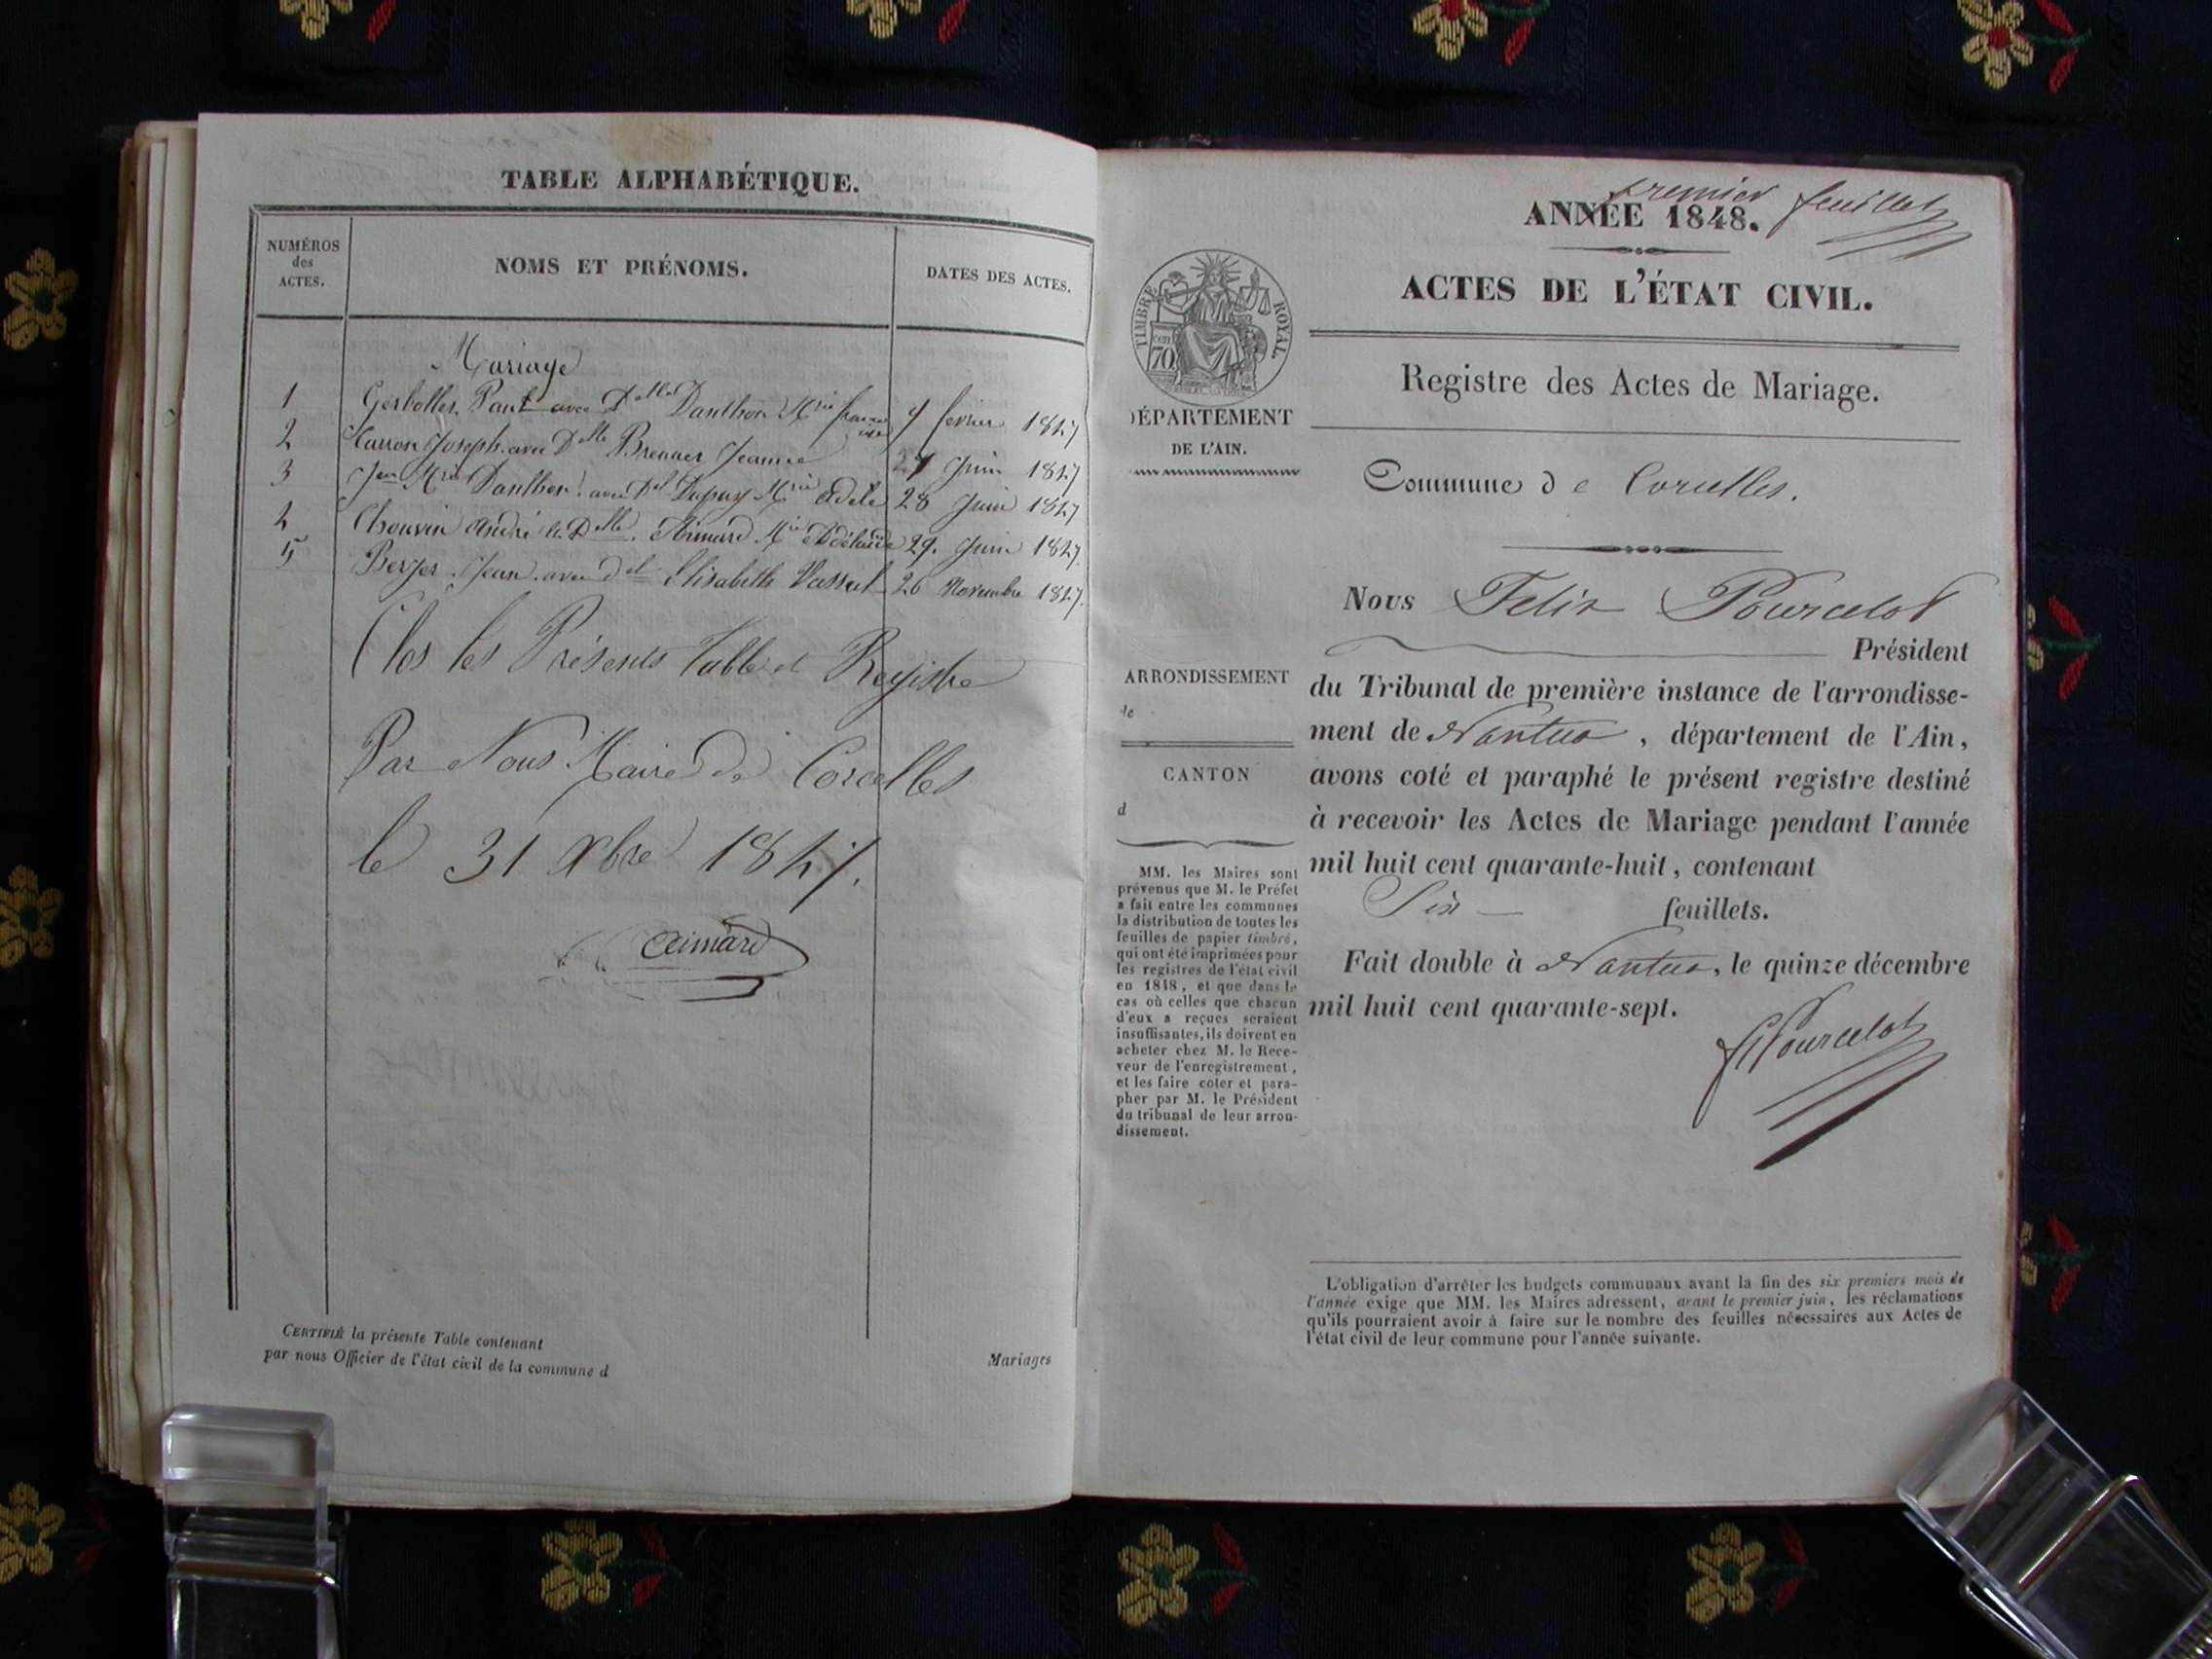 TABLE ALPHABÉTIQUE.
NUMÉROS
des
ACTES.
NOMS ET PRÉNOMS.
DATES DES ACTES.
Mariage
1 Gerbollet Paul avec Dlle Danthon Mrie française 4 fevrier 1847
2 Carron Joseph avec Dlle Breuner Jeanne 24 Juin 1847
3 Jean Mrie Danthon avec Dlle Dupuy Mrie Adele 28 Juin 1847
4 Chouvin André et Dlle Aimard Mrie Adélaïde 29. Juin 1847
5 Berger Jean avec Dlle Elisabeth 26 Novembre 1847.
Clos les Présents Table et Registre
Par Nous Maire de Corcelles
le 31 Xbre 1847.
Aimard
CERTIFIÉ la présente Table contenant
par nous Officier de l'état civil de la commune d
Mariages
premier feuillet
ANNÉE 1848.
ACTES DE L'ÉTAT CIVIL.
TIMBRE ROYAL.
cen 70
Registre des Actes de Mariage.
DÉPARTEMENT
DE L'AIN.
Commune de Corcelles.
Nous Felix Pourcelot
Président
ARRONDISSEMENT
de
CANTON
d
du Tribunal de première instance de l'arrondisse-
ment de Nantua, département de l'Ain,
avons coté et paraphé le présent registre destiné
à recevoir les Actes de Mariage pendant l'année
mil huit cent quarante-huit, contenant
Six feuillets.
Fait double à Nantua, le quinze décembre
mil huit cent quarante-sept.
fPourcelot
MM. les Maires sont
prévenus que M. le Préfet
a fait entre les communes
la distribution de toutes les
feuilles de papier timbré,
qui ont été imprimées pour
les registres de l'état civil
en 1848, et que dans le
cas où celles que chacun
d'eux a reçues seraient
insuffisantes, ils doivent en
acheter chez M. le Rece-
veur de l'enregistrement,
et les faire coter et para-
pher par M. le Président
du tribunal de leur arron-
dissement.
L'obligation d'arrêter les budgets communaux avant la fin des six premiers mois de
l'année exige que MM. les Maires adressent, avant le premier juin, les réclamations
qu'ils pourraient avoir à faire sur le nombre des feuilles nécessaires aux Actes de
l'état civil de leur commune pour l'année suivante.